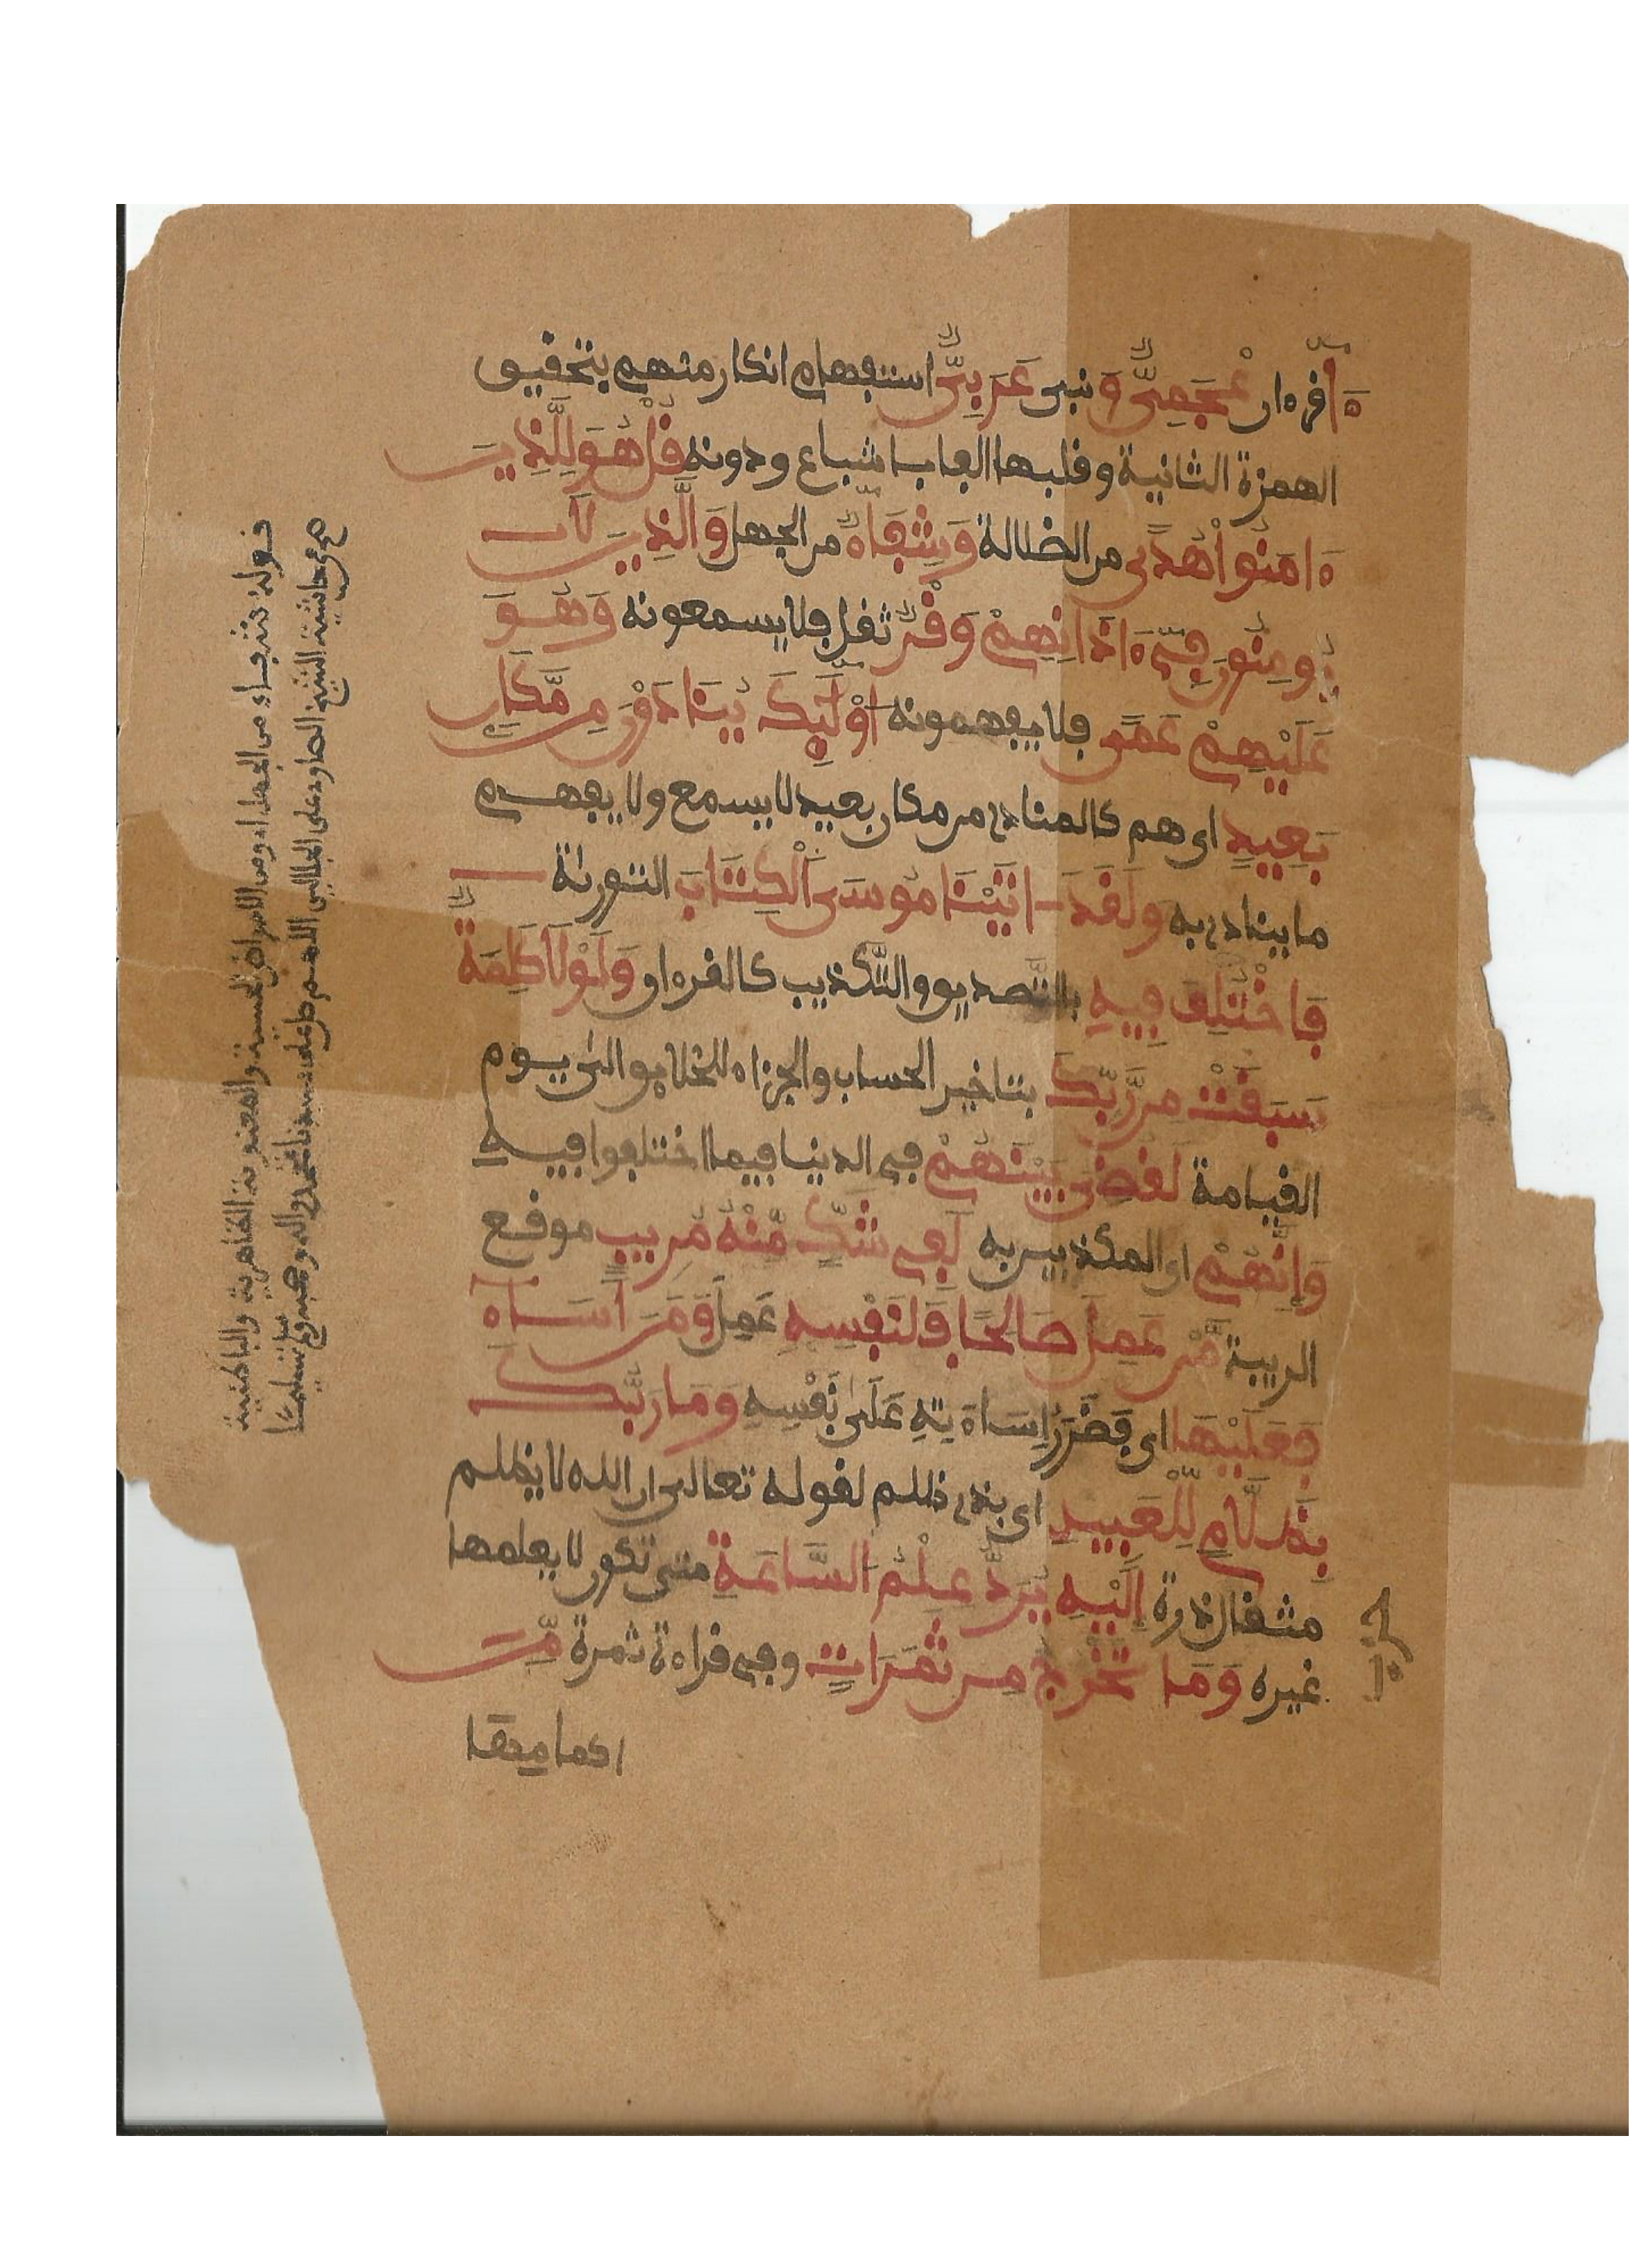 ءا۬قرءان عْجَمِيٌّ وَنبي عَرَبِيٌّ استفهام انكار منهم بتحقيق
الهمزة الثانية وقلبها الفا باشباع ودونه قُلْ هُوَ لِلَّذِينَ
ءَامَنُواْ هُدًى من الضلالة وَشِفَآءٌ من الجهل وَالَّذِينَ لَا
يُومِنُونَ فِيٓ ءَاذَانِهِمْ وَقْرٌ ثقل فلا يسمعونه وَهُوَ
عَلَيْهِمْ عَمًى فلا يفهمونه أُوْلَٰٓئِكَ يُنَادَوْنَ مِن مَّكَانٍ
بَعِيدٍ اي هم كالمنادى من مكان بعيد لا يسمع ولا يفهم
ما ينادى به وَلَقَدَ اتَيْنَا مُوسَى اَلْكِتَابَ التورىٰة
فَاخْتُلِفَ فِيهِ بالتَّصديق والتَّكذيب كالقرءان وَلَوْلَا كَلِمَةٌ
سَبَقَتْ مِن رَّبِّكَ بتاخير الحساب والجزاء للخلايق الى يوم
القيامة لَقُضِيَ بَيْنَهُمْ في الدنيا فيما اختلفوا فيه
وَإِنَّهُمْ اي المكذبين به لَفِي شَكٍّ مِّنْهُ مُرِيبٍ موقع
الريبة مَّنْ عَمِلَ صَالِحًا فَلِنَفْسِهِ عَمِلَ وَمَنَ اَسَآءَ
فَعَلَيْهَا اي فَضَرَرُ إِسَاءَتِهِ عَلَىٰ نَفْسِهِ وَمَا رَبُّكَ
بِظَلَّامٍ لِّلْعَبِيدِ اي بذي ظلم لقوله تعالى ان الله لا يظلم
مثقال ذرة إِلَيْهِ يُرَدُّ عِلْمُ السَّاعَةِ متى تكون لا يعلمها
غيره وَمَا تَخْرُجُ مِن ثَمَرَاتٍ وفي قراءة ثمرة مِّنَ
اكمامها
حزب
قوله من الجهل اي ومن الامراض الحسية والمعنوية الظاهرية والباطنية
حاشية الشيخ الصاوي على الجلالين اللهم صل على سيدنا محمد واله وصحبه وسلم تسليما